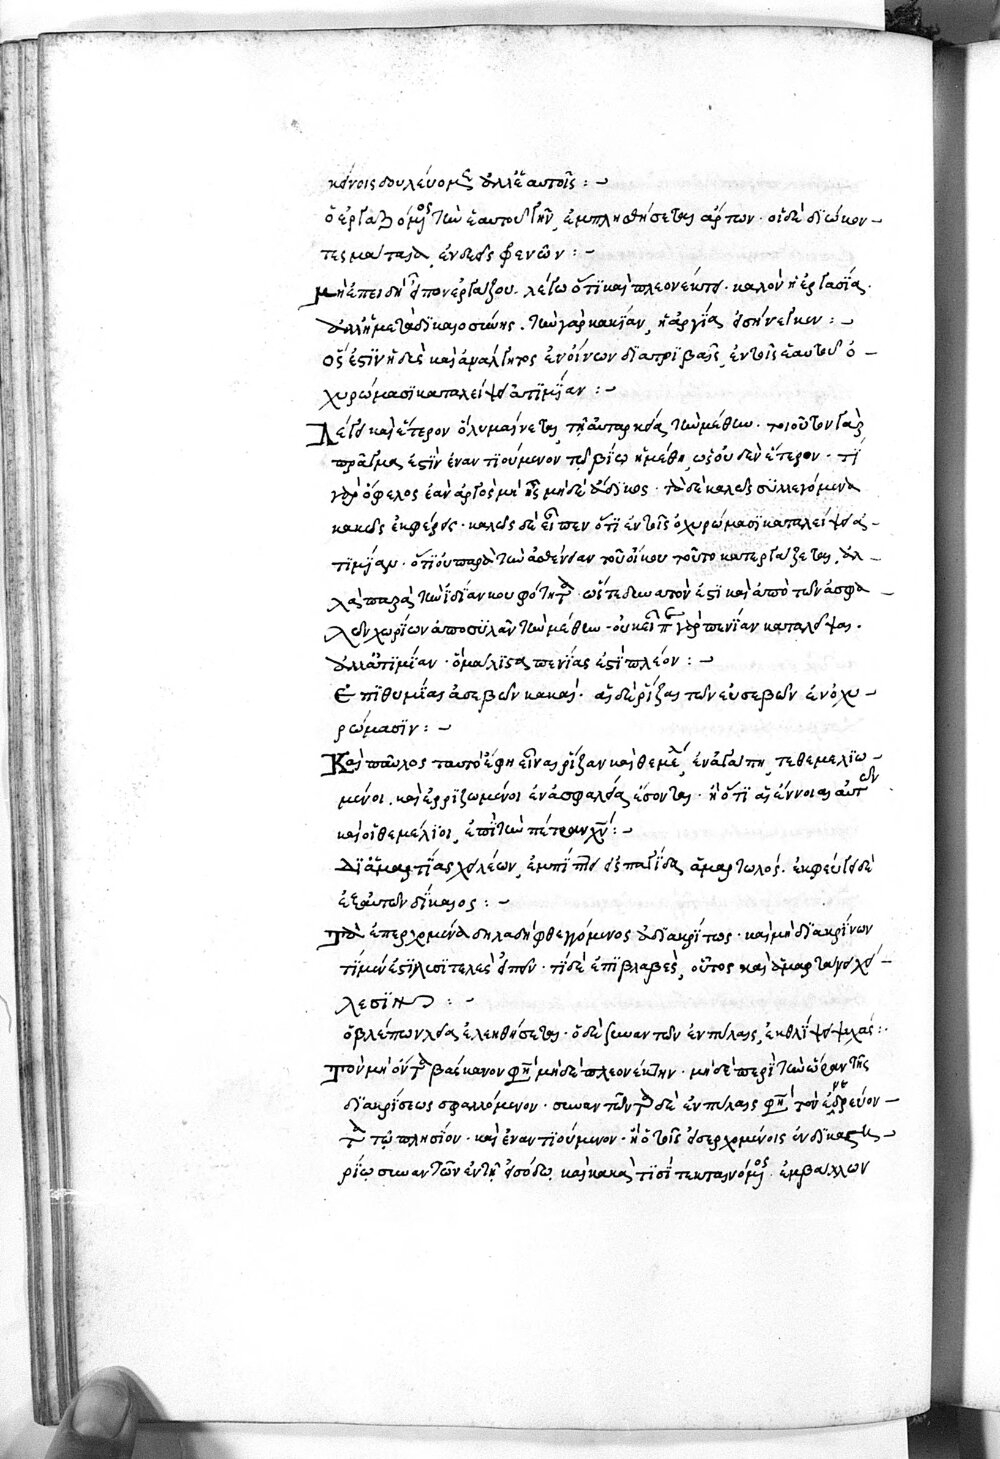 κείνοις δουλεύομεν ἀλλ' ἑαυτοῖς : ~
ὁ ἐργαζόμενος τὴν ἑαυτοῦ γῆν, ἐμπλησθήσεται ἄρτων · οἱ δὲ διώκον –
τες μάταια, ἐνδεεῖς φρενῶν : –
μὴ ἐπειδὴ εἶπον ἐργάζου. λέγω ὅτι καὶ πλεονέκτει · καλὸν ἡ ἐργασία ·
ἀλλὰ μετὰ δικαιοσύνης · τὴν γὰρ κακίαν, ἡ ἀργία εἰσήνεγκεν : ~
ὅς ἐστιν ἡδὺς καὶ ἀμάλγητος ἐν οἴνων διατριβαῖς, ἐν τοῖς ἑαυτοῦ ὀ –
χυρώμασι καταλείψει ἀτιμίαν : ~
λέγει καὶ ἕτερον ὃ λυμαίνεται τῇ αὐταρκείᾳ τὴν μέθην · τοιοῦτον γὰρ
πρᾶγμά ἐστιν ἐναντιούμενον τῷ βίῳ ἡ μέθη, ὡς οὐδὲν ἕτερον · τί
γὰρ ὄφελος ἐὰν ἀργὸς μὴ ᾖς μηδὲ ἄδικος · τὰ δὲ καλῶς συλλεγόμενα
κακῶς ἐκφέρεις · καλῶς δὲ εἶπεν ὅτι ἐν τοῖς ὀχυρώμασι καταλείψει ἀ –
τιμίαν · ὅτι οὐ παρὰ τὴν ἀσθένειαν τοῦ οἴκου τοῦτο κατεργάζεται, ἀλ –
λὰ παρὰ τὴν ἰδίαν κουφότητα · ὥστε δυνατόν ἐστι καὶ ἀπὸ τῶν ἀσφα –
λῶν χωρίων ἀποσυλᾶν τὴν μέθην · οὐκ εἶπε γὰρ πενίαν καταλείψει ·
ἀλλ' ἀτιμίαν · ὃ μάλιστα πενίας ἐστὶ πλέον : ~
Ἐπιθυμίαι ἀσεβῶν κακαί · αἱ δὲ ῥίζαι τῶν εὐσεβῶν ἐν ὀχυ –
ρώμασιν : ~
Καὶ παῦλος ταυτὸ ἔφη εἶναι ῥίζαν καὶ θεμέλιον, ἐν ἀγάπῃ, τεθεμελιω –
μένοι, καὶ ἐρριζωμένοι ἐν ἀσφαλείᾳ ἔσονται · ἢ ὅτι αἱ ἔννοιαι αὐτῶν
καὶ οἱ θεμέλιοι, ἐπὶ τὴν πέτραν χν : ~
Δι' ἁμαρτίας χειλέων, ἐμπίπτει εἰς παγίδας ἁμαρτωλός · ἐκφεύγει δὲ
ἐξ αὐτῶν δίκαιος : ~
τὰ ἐπερχόμενα δηλαδὴ φθεγγόμενος ἀδιακρίτως · καὶ μὴ διακρίνων
τί μέν ἐστι λυσιτελὲς εἰπεῖν · τί δὲ ἐπιβλαβές, οὗτος καὶ ἁμαρτάνει χεί –
λεσιν : ~
ὁ βλέπων λεῖα ἐλεηθήσεται · ὁ δὲ συναντῶν ἐν πύλαις, ἐκθλίψει ψυχάς :
τὸν μὴ ὄντα βάσκανον φησὶ μηδὲ πλεονέκτην · μηδὲ περὶ τὴν εὕρεσιν τῆς
διακρίσεως σφαλλόμενον · συναντῶντα δὲ ἐν πύλαις φησὶ τὸν ἐνεδρεύον –
τα τῷ πλησίον · καὶ ἐναντιούμενον · ἢ ὁ τοῖς εἰσερχομένοις ἐν δικαστη –
ρίῳ συναντῶν ἐν τῇ εἰσόδῳ, καὶ κακά τισι τεκταινόμενος · ἐμβάλλων